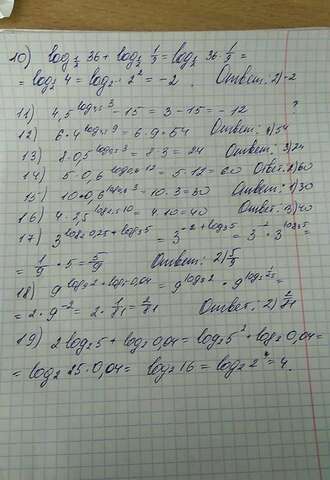 10) log½ 36 + log½ 1/9 = log½ 36 · 1/9 =
= log½ 4 = log₂⁻¹ 2² = -2. Ответ: 2) -2
11) 4,5^log₄,₅3 - 15 = 3 - 15 = -12 ?
12) 6 · 4^log₄9 = 6 · 9 = 54 Ответ: 4) 54
13) 8 · 0,5^log₀,₅3 = 8 · 3 = 24 Ответ: 3) 24
14) 5 · 0,6^log₀,₆12 = 5 · 12 = 60 Ответ: 2) 60
15) 10 · 0,5^log₀,₅3 = 10 · 3 = 30 Ответ: 1) 30
16) 4 · 2,5^log₂,₅10 = 4 · 10 = 40 Ответ: 3) 40
17) 3^log₂0,25 + log₃5 = 3^-2 + log₃5 = 3^-2 · 3^log₃5 =
= 1/9 · 5 = 5/9 Ответ: 2) 5/9
= 2 · 9^-2 = 2 · 1/81 = 2/81 Ответ: 2) 2/81
19) 2 log₂5 + log₂0,04 = log₂5² + log₂0,04 =
= log₂ 25 · 0,04 = log₂ 16 = log₂ 2⁴ = 4.